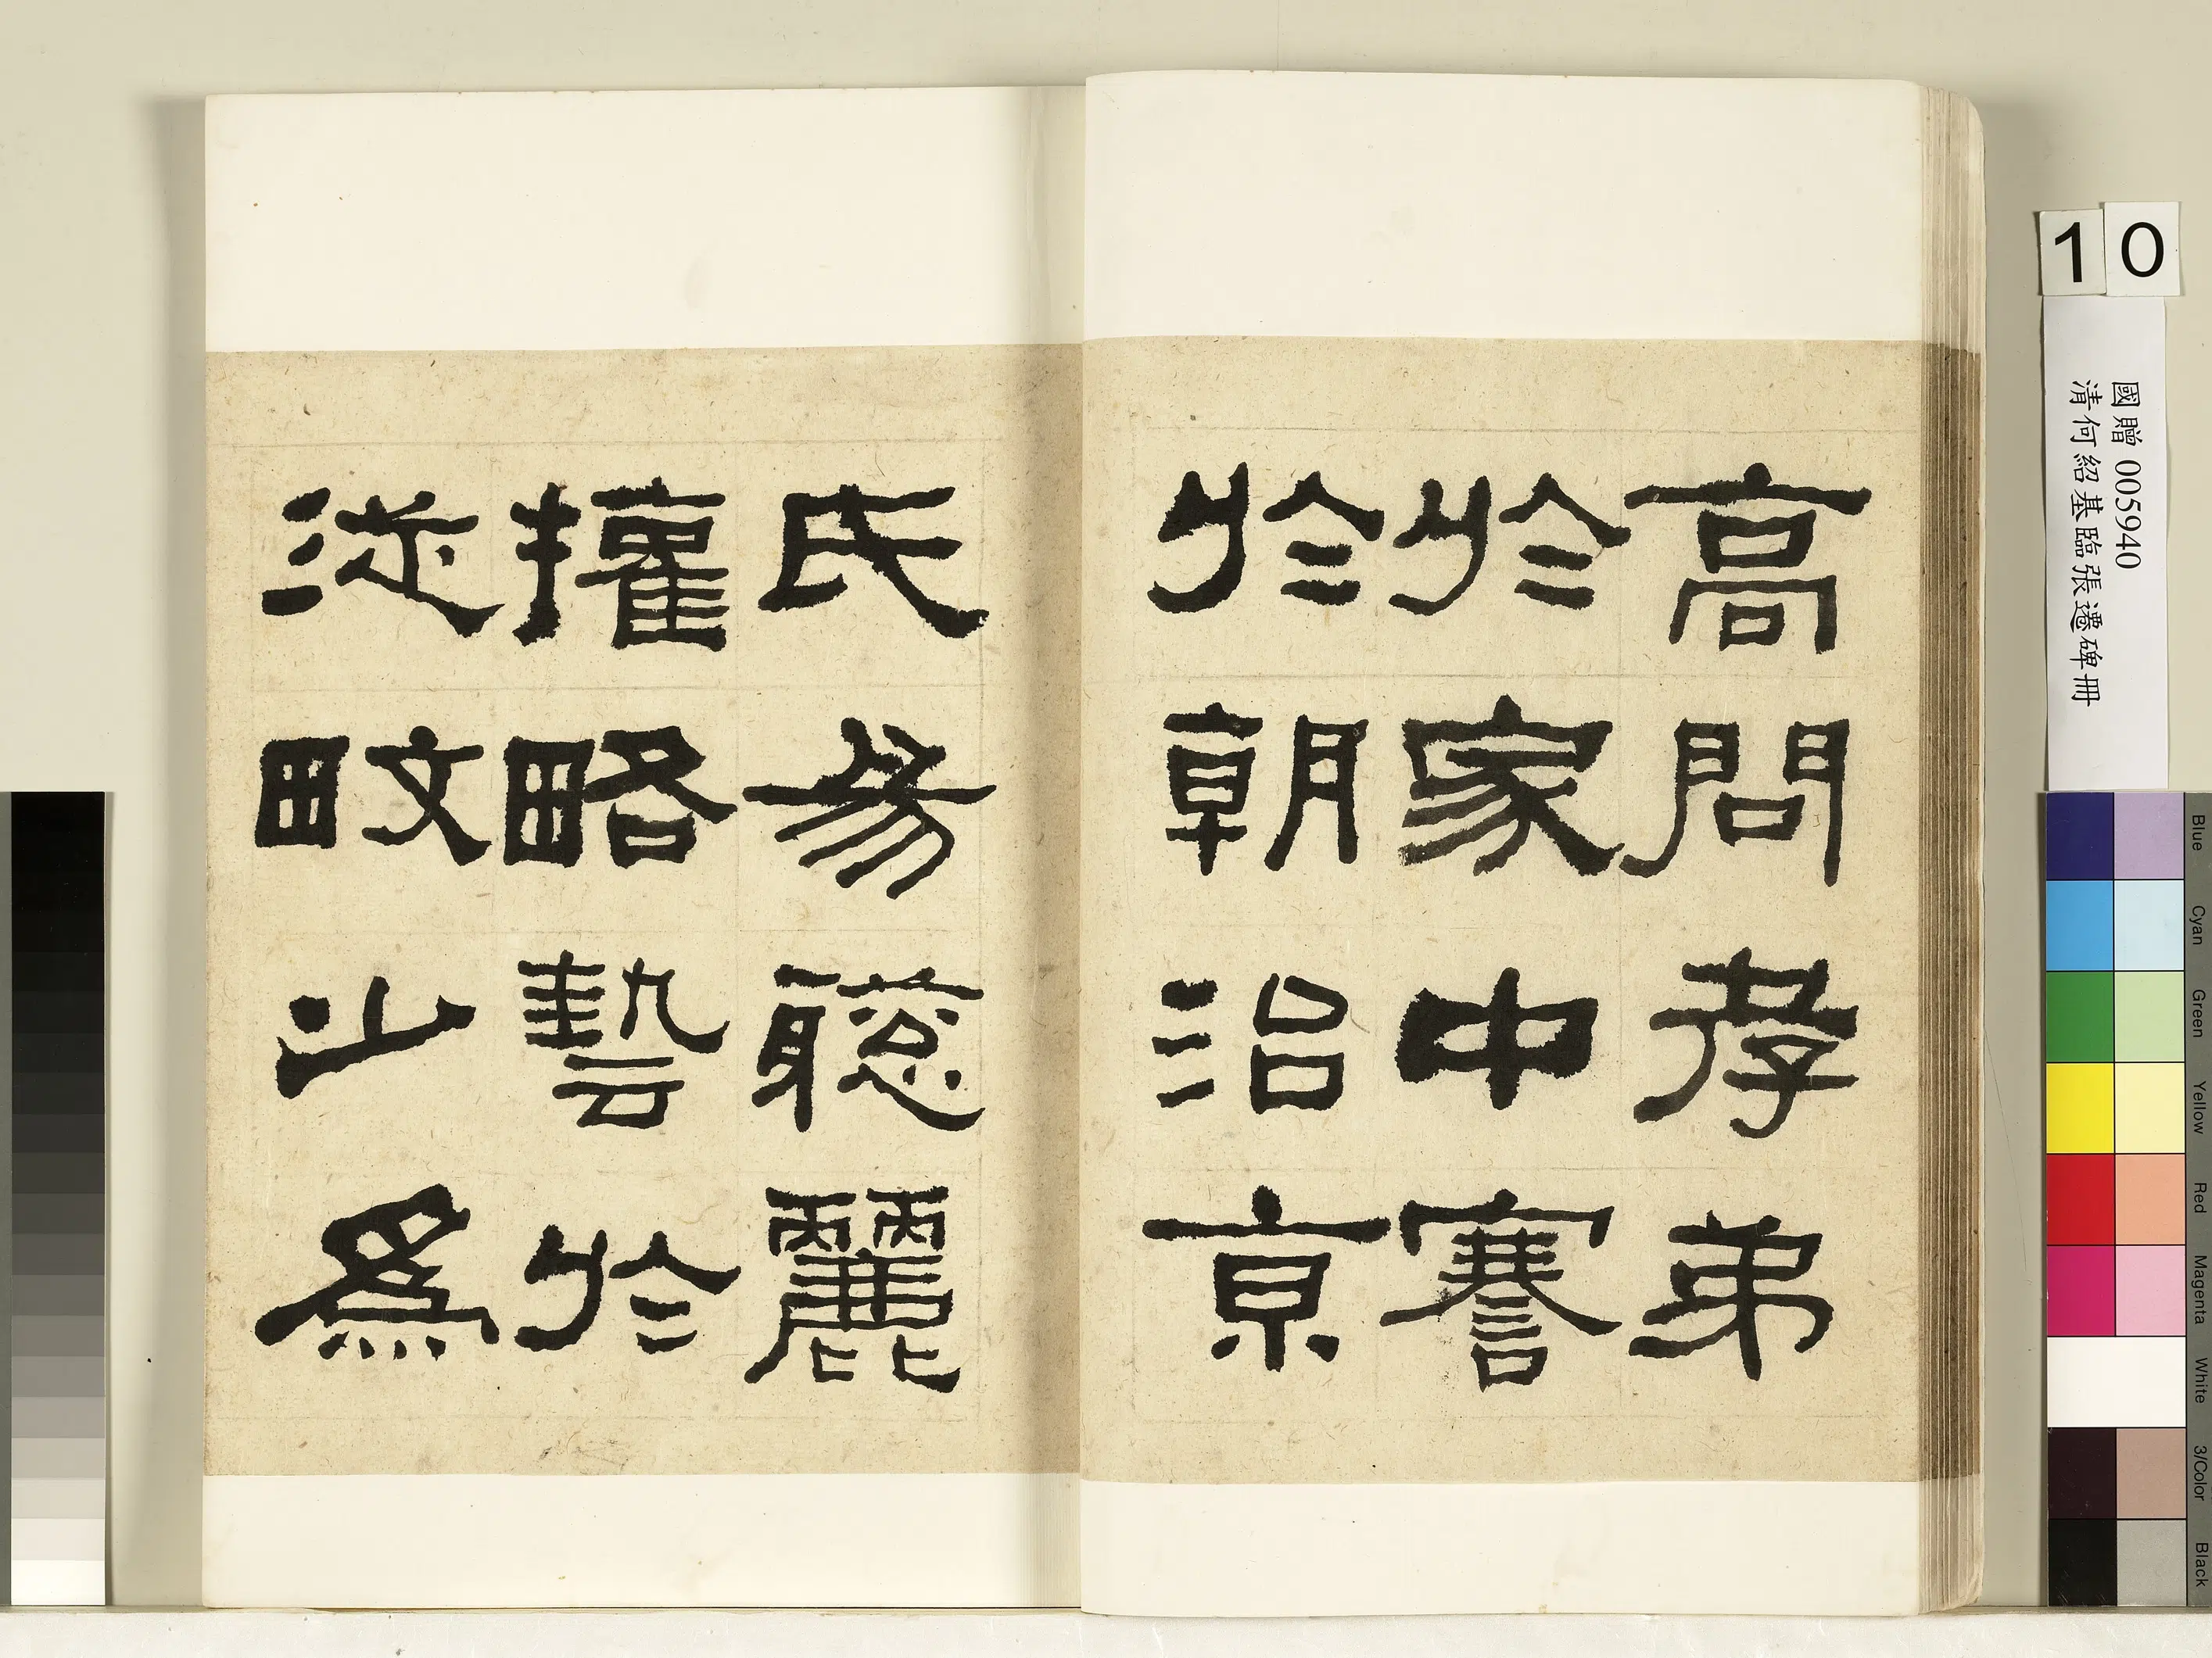 高問孝弟
於家中謇
於朝治京
氏易聰麗
權略藝於
從畋少為
10
國贈 005940
清何紹基臨張遷碑冊
Blue
Cyan
Green
Yellow
Red
Magenta
White
3/Color
Black